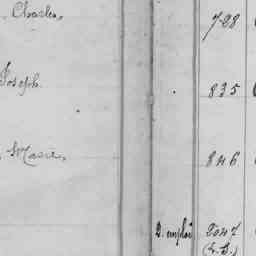 Charles, 728
Joseph 835
Marie, 846
D. emploi 2047
(L. B.)